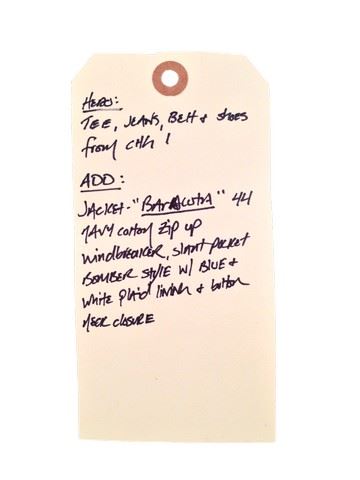 HERO:
TEE, JEANS, BELT & SHOES
from CHG 1
ADD:
JACKET - "BARACUTA" 44
NAVY cotton zip up
windbreaker, slant pocket
BOMBER STYLE W/ BLUE &
white plaid lining & button
NECK CLOSURE